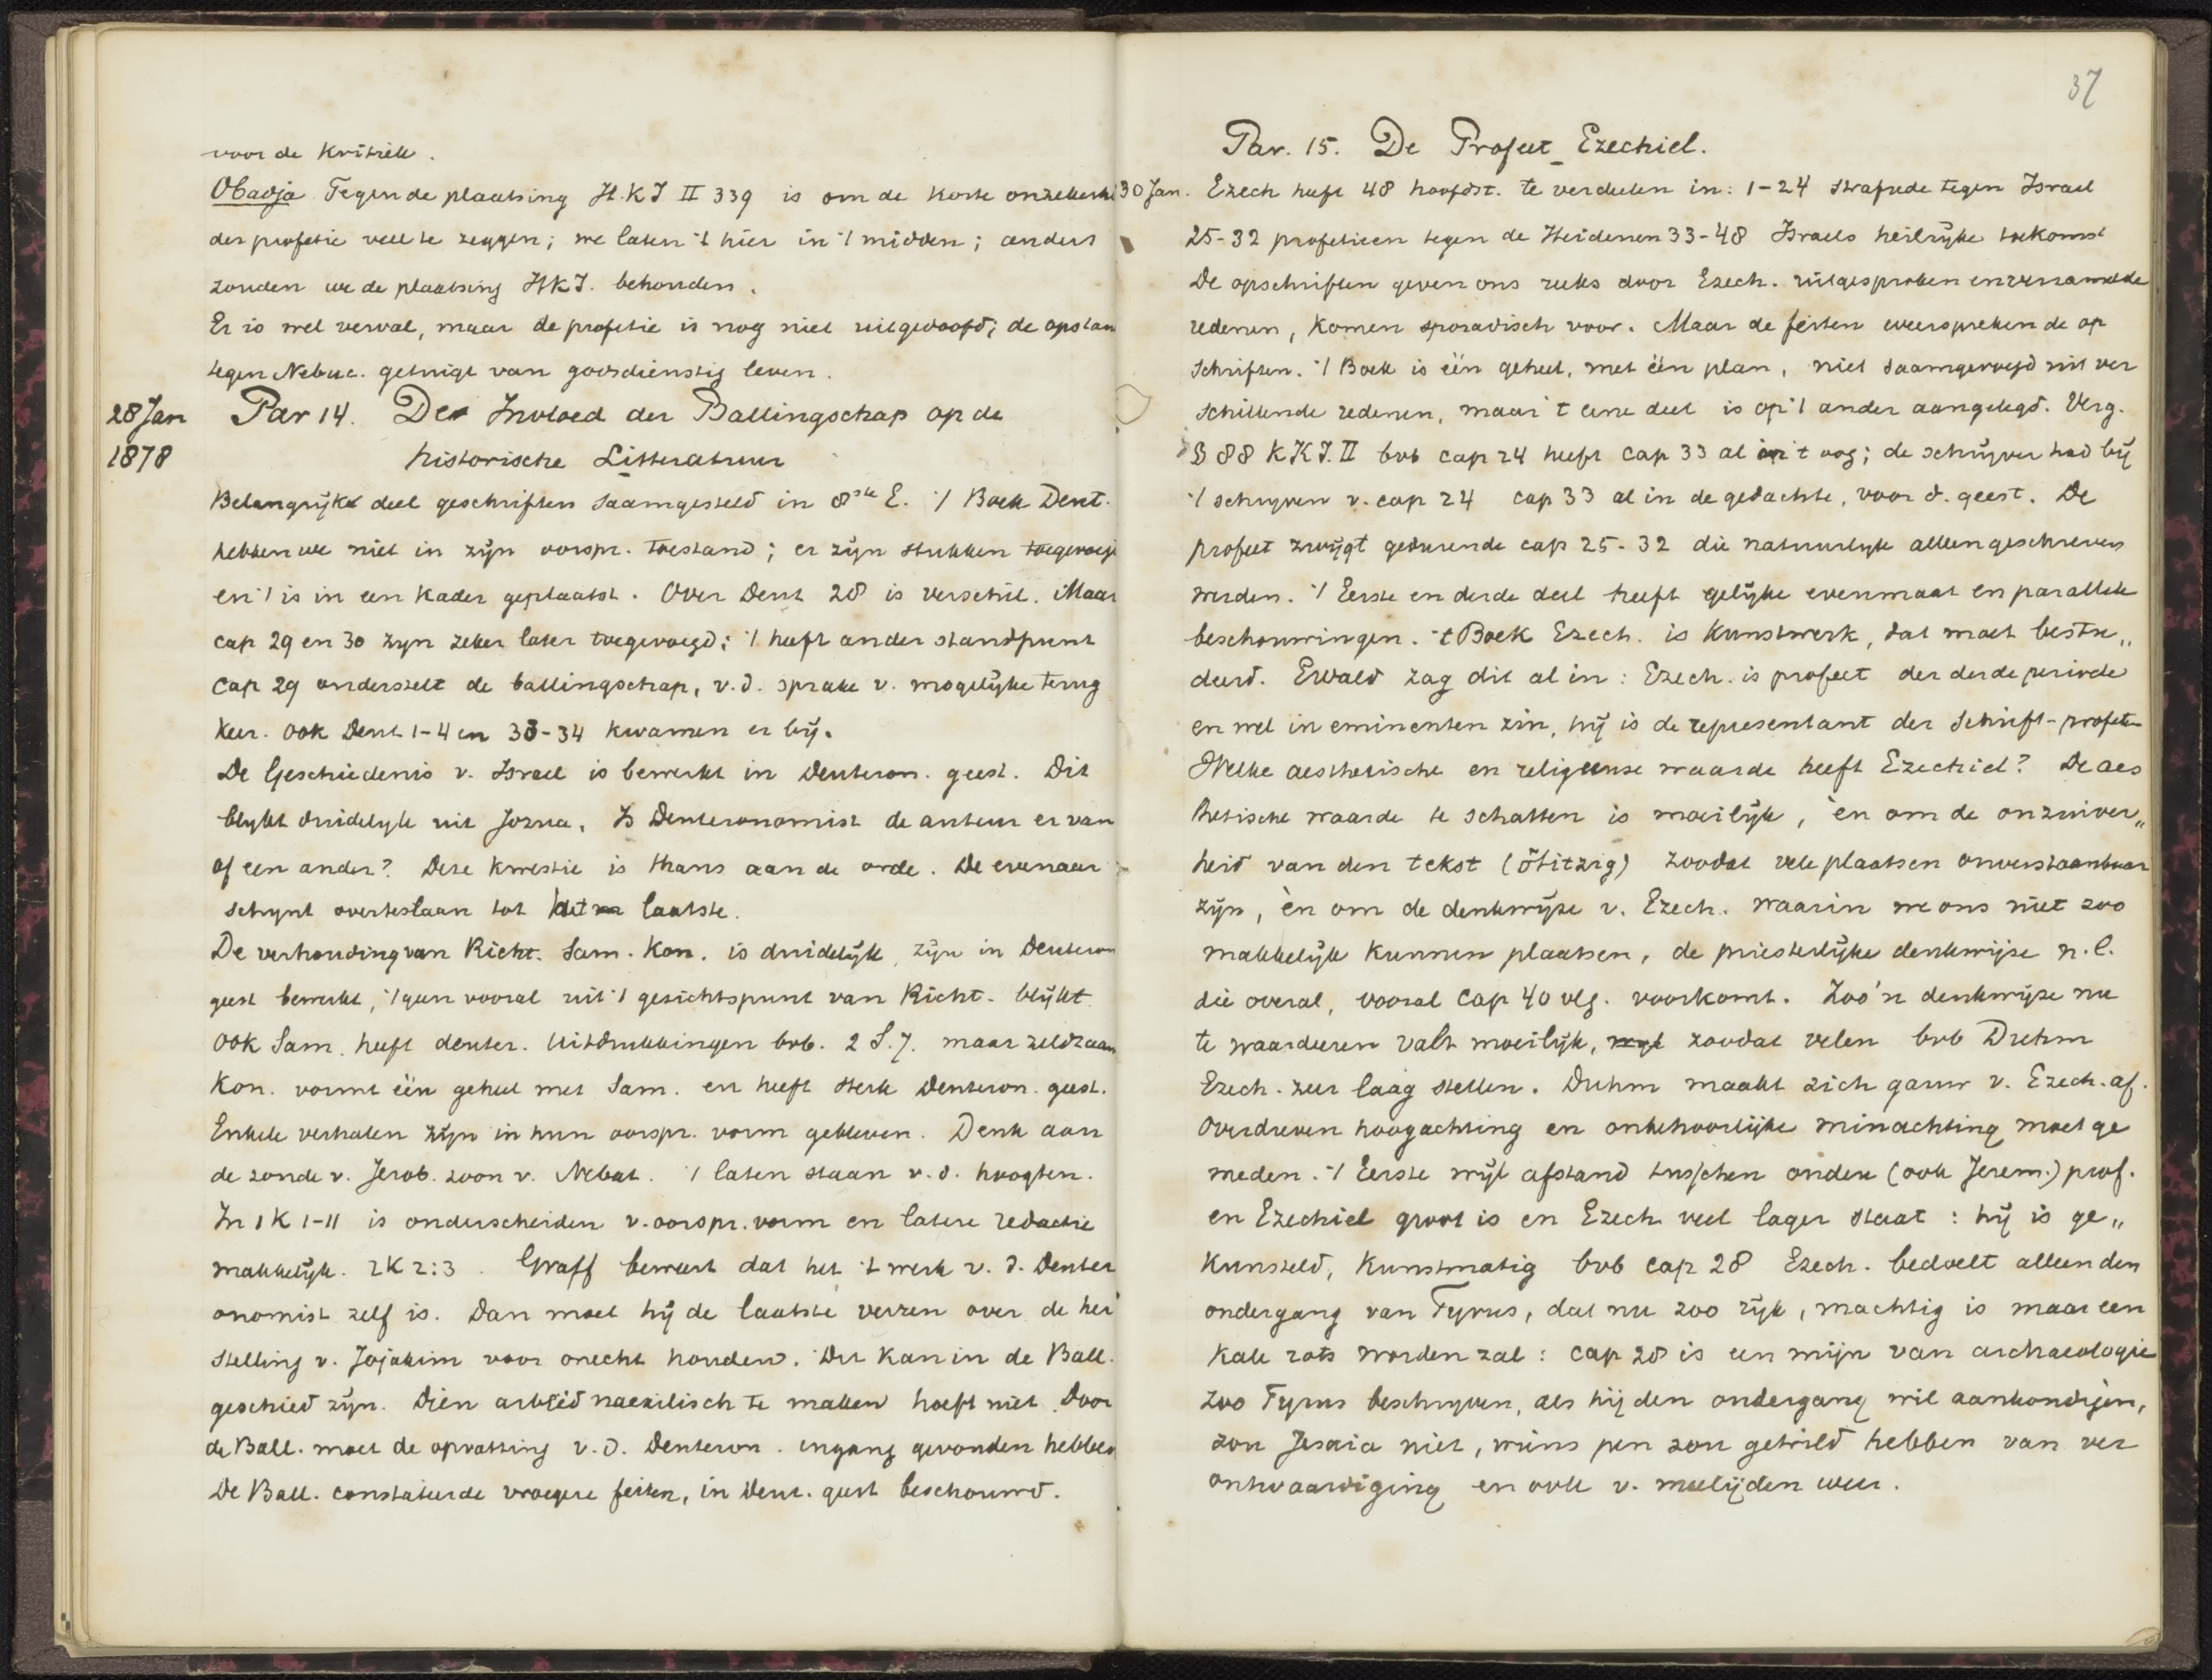 voor de Kritiek.
Obadja Tegen de plaatsing H.K.I II 339 is om de korte onzekerhe
der profetie veel te zeggen; we laten 't hier in 't midden; anders
zouden we de plaatsing HKI. behouden.
Er is wel verval, maar de profetie is nog niet uitgedoofd; de opstan
tegen Nebuc. getuigt van godsdienstig leven.
28 Jan
1878
Par 14. De Invloed der Ballingschap op de
historische Litteratuur
Belangrijk deel geschriften saamgesteld in 8ste E. 't Boek Deut.
hebben we niet in zijn oorspr. toestand; er zijn stukken toegevoegd
en 't is in een kader geplaatst. Over Deut 28 is verschil. Maar
cap 29 en 30 zyn zeker later toegevoegd; 't heeft ander standpunt
Cap 29 onderstelt de ballingschap, v.d. sprake v. mogelijke terug
keer. ook Deut 1-4 en 33-34 kwamen er bij.
De Geschiedenis v. Israel is bewerkt in Deuteron. geest. Dit
blykt duidelyk uit Jozua. Is Deuteronomist de auteur er van
of een ander? Deze kwestie is thans aan de orde. De evenaar
schynt overteslaan tot het laatste.
De verhouding van Richt. Sam. Kon. is duidelijk, zijn in Deuteron
geest bewerkt, 't geen vooral uit 't gezichtspunt van Richt. blijkt.
ook Sam. heeft deuter. uitdrukkingen bvb. 2 S. 7. maar zeldzaam
Kon. vormt één geheel met Sam. en heeft sterk Deuteron. geest.
Enkele verhalen zijn in hun oorspr. vorm gebleven. Denk aan
de zonde v. Jerob. zoon v. Nebat. 't laten staan v.d. hoogten.
In 1 K 1-11 is onderscheiden v. oorspr. vorm en latere redactie
makkelijk. 2K 2:3. Graff beweert dat het 't werk v. d. Deuter
onomist zelf is. Dan moet hij de laatste verzen over de her
stelling v. Jojakim voor onecht houden. Dit kan in de Ball.
geschied zijn. Dien arbeid naexilisch te maken hoeft niet. Door
de Ball. moet de opvatting v.d. Deuteron. ingang gevonden hebben
De Ball. constateerde vroegere feiten, in Deut. geest beschouwd.
37
Par. 15. De Profeet Ezechiel.
30 Jan. Ezech heeft 48 hoofdst. te verdeelen in: 1-24 strafrede tegen Israel
25-32 profetieen tegen de Heidenen 33-48 Israels heilrijke toekomst
De opschriften geven ons reeks door Ezech. uitgesproken en verzamelde
redenen, komen sporadisch voor. Maar de feiten weerspreken de op
schriften. 't Boek is één geheel, met één plan, niet saamgevoegd uit ver
schillende redenen, maar 't eene deel is op 't ander aangelegd. Verg.
§ 88 K K.I. II bvb cap 24 heeft cap 33 al in 't oog; de schrijver had bij
't schryven v. cap 24 cap 33 al in de gedachte, voor d. geest. De
profeet zwijgt gedurende cap 25-32 die natuurlyk alleen geschreven
werden. 't Eerste en derde deel heeft gelijke evenmaat en parallele
beschouwingen. 't Boek Ezech. is kunstwerk, dat moet bestu„
deerd. Ewald zag dit al in: Ezech. is profeet der derde periode
en wel in eminenten zin, hij is de representant der Schrift-profeten
Welke aesthetische en religieuse waarde heeft Ezechiel? De aes
thetische waarde te schatten is moeilijk, èn om de onzuiver„
heid van den tekst (Hitzig) zoodat vele plaatsen onverstaanbaar
zijn, èn om de denkwijze v. Ezech. waarin we ons niet zoo
makkelijk kunnen plaatsen, de priesterlijke denkwijze n.l.
die overal, vooral Cap 40 vlg. voorkomt. Zoo'n denkwijze nu
te waardeeren valt moeilijk, zoodat velen bvb Duhm
Ezech. zeer laag stellen. Duhm maakt zich gauw v. Ezech. af.
Overdreven hoogachting en onbehoorlijke minachting moet ge
meden. 't Eerste wijl afstand tusschen oudere (ook Jerem.) prof.
en Ezechiel groot is en Ezech veel lager staat: hij is ge„
kunsteld, kunstmatig bvb cap 28 Ezech. bedoelt alleen den
ondergang van Tyrus, dat nu zoo rijk, machtig is maar een
kale rots worden zal: cap 28 is een mijn van archaeologie
zoo Tyrus beschryven, als hij den ondergang wil aankondigen,
zou Jesaia niet, wiens pen zou getrild hebben van ver
ontwaardiging en ook v. meelijden weer.